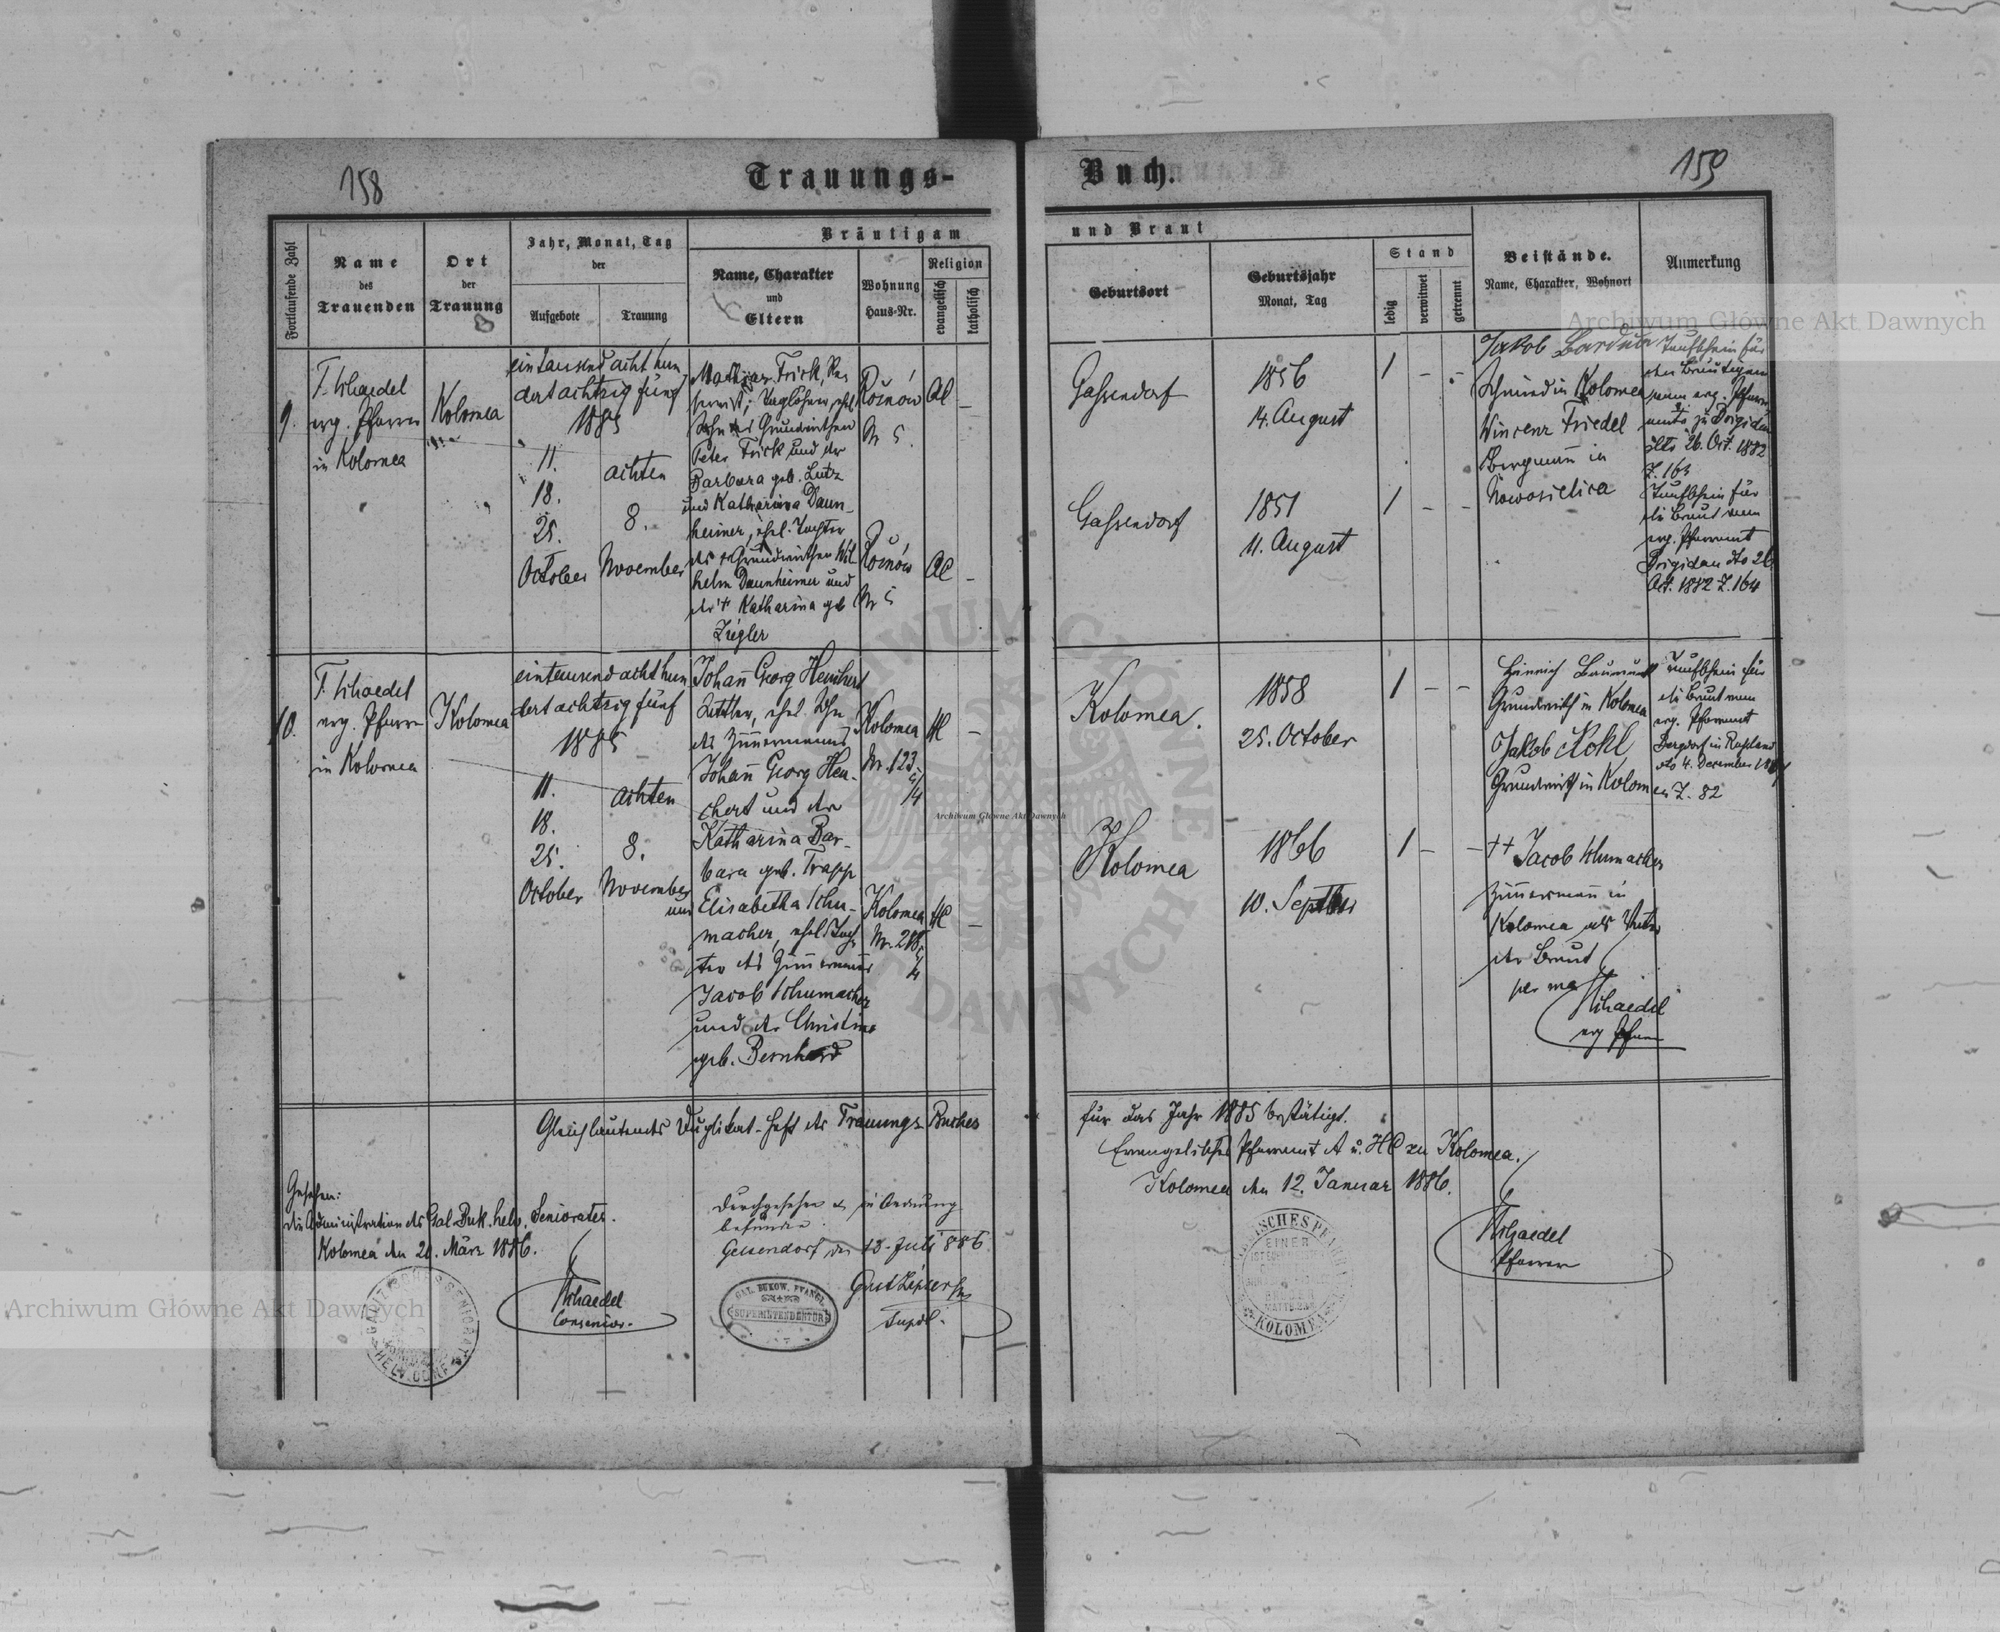 158
Trauungs-
Buch.
159
Fortlaufende Zahl
Name
des
Trauenden
Ort
der
Trauung
Jahr, Monat, Tag
der
Aufgebote
Trauung
Bräutigam
Name, Charakter
und
Eltern
Wohnung
Haus-Nr.
Religion
evangelisch
katholisch
und Braut
Geburtsort
Geburtsjahr
Monat, Tag
Stand
ledig
verwitwet
getrennt
Beistände.
Name, Charakter, Wohnort
Anmerkung
9.
Schaedel
evg. Pfarrer
in Kolomea
Kolomea
eintausend acht hun
dert achtzig fünf
1885
11.
18.
25.
October
achten
8.
November
Mathias Frick, Re
servist, Taglöhner, ehel.
Sohn des Grundwirthen
Peter Frick und der
Barbara geb. Lutz
und Katharina Daun-
heimer, ehel. Tochter
des + Grundwirthen Wil
helm Daunheimer und
der + Katharina geb
Ziegler
Rožnów
Nr 5.
AC
–
Rožnów
Nr 5
AC
–
Gassendorf
1856
14. August
1
–
–
Gassendorf
1851
11. August
1
–
–
Jakob
Schmied in Kolomea
Wincenz Friedel
Bergmann in
Nowosielica
Taufschein für
den Bräutigam
vom evg. Pfarr
amte zu Brigidau
dto 26. Oct. 1882
Z. 163
Taufschein für
die Braut vom
evg. Pfarramt
Brigidau dto 26
Oct. 1882 Z. 164
10.
Schaedel
evg. Pfarrer
in Kolomea
Kolomea
eintausend acht hun
dert achtzig fünf
1885
11.
18.
25.
October
achten
8.
November
Johann Georg Heuchert
ehel. Sohn
des Zimmermanns
Johann Georg Heu-
chert und der
Katharina Bar-
bara geb. Trapp
und Elisabetha Schu-
macher, ehel. Toch
ter des Zimmermanns
Jacob Schumacher
und der Christine
geb. Bernhard
Kolomea
Nr. 123
HC
–
Kolomea
HC
–
Kolomea.
1858
25. October
1
–
–
Kolomea
1866
10. September
1
–
–
Heinrich
Grundwirth in Kolomea
Jakob
Grundwirth in Kolomea
++ Jacob Schumacher
Zimmermann in
Kolomea als Vater
der Braut
per me
Schaedel
evg Pfarrer
Taufschein für
die Braut vom
evg. Pfarramt
Bergdorf in Rußland
dto 4. December
Z. 82
Gleichlautendes Duplikat-Heft des Trauungs Buches
für das Jahr 1885 bestätigt.
Evangelisches Pfarramt A u. HC zu Kolomea.
Kolomea den 12. Januar 1886.
Schaedel
Pfarrer
Gesehen:
die Administration des Gal. Buk. helv. Seniorates.
Kolomea den 21. März 1886.
Schaedel
Consenior.
Durchgesehen & in Ordnung
befunden
Gelsendorf den 13. Juli 886
Supdt.
GAL. BUKOW. EVANGL.
SUPERINTENDENTUR
KOLOMEA
Archiwum Główne Akt Dawnych
Archiwum Główne Akt Dawnych
Archiwum Główne Akt Dawnych
ARCHIWUM GŁÓWNE AKT DAWNYCH